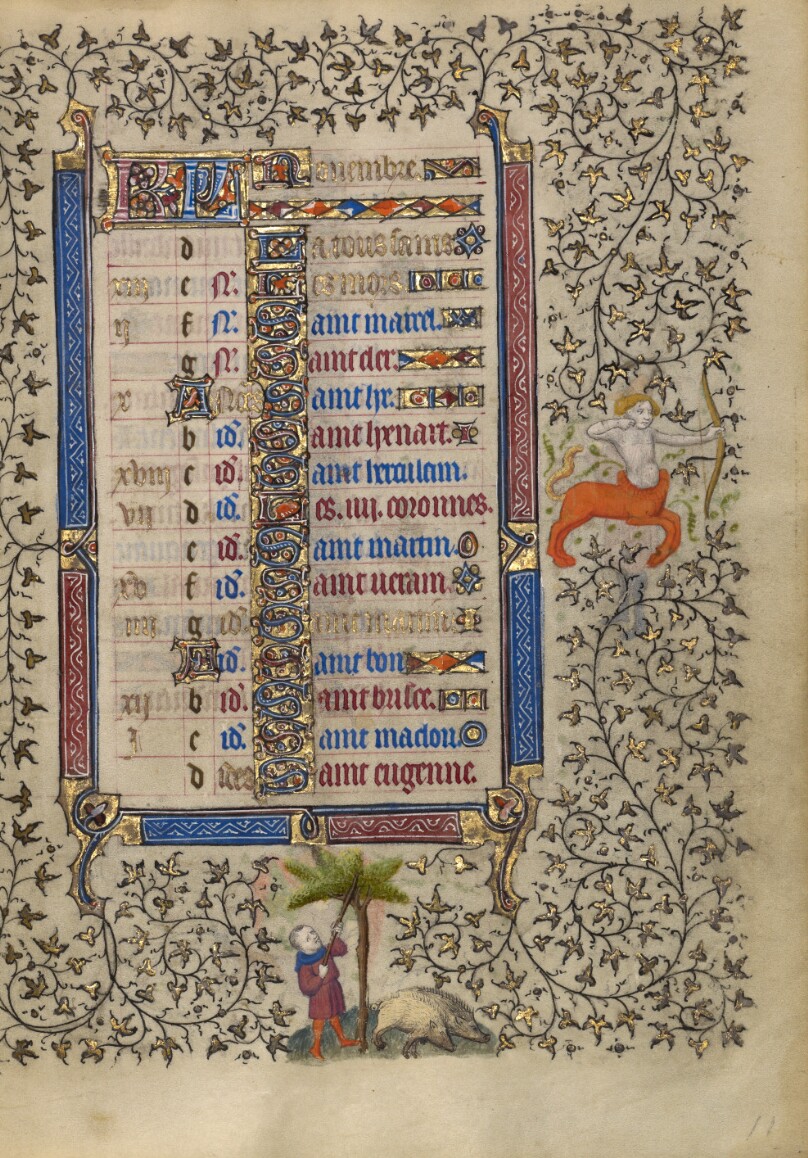 KL Nouembre.
d La tous sains
xiii e N. Les mors
ii f N. Saint marcel.
g N. Saint cler.
x A None Saint lye.
b id. Saint lienart.
xviii c id. Saint herculain.
vii d id. Les .iiii. coronnes.
e id. Saint martin.
xv f id. Saint uerain.
iiii g id. Saint martin
A id. Saint bon
xii b id. Saint brisce.
i c id. Saint maclou.
d ides Saint eugenne.
11